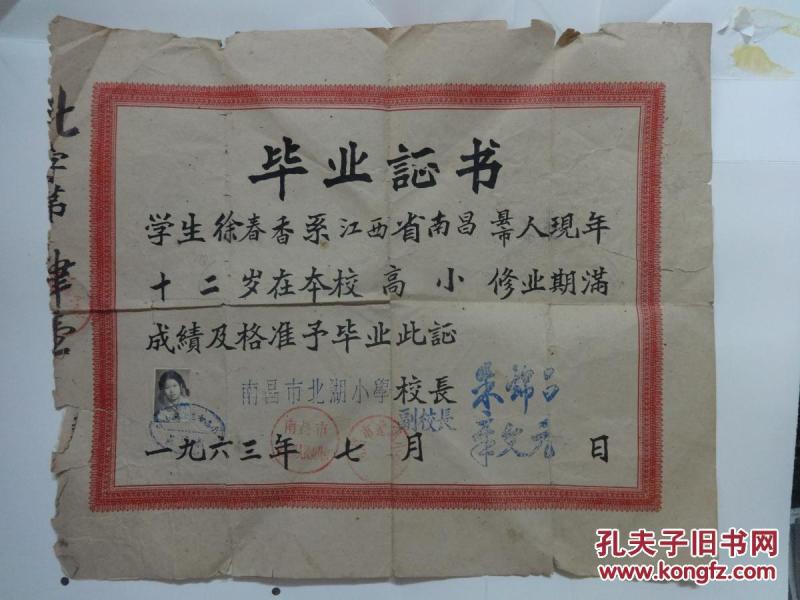 毕业証书
学生徐春香系江西省南昌县市人現年
十二岁在本校高小修业期滿
成績及格准予毕业此証
南昌市北湖小學校長朱錦昌
副校長
一九六三年七月日
北字第肆壹
南昌市
孔夫子旧书网
www.kongfz.com